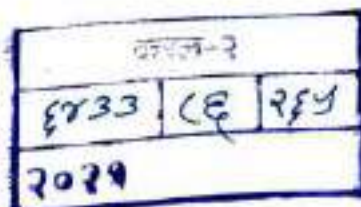 करल-२
६४३३ ८६ २६५
२०२१